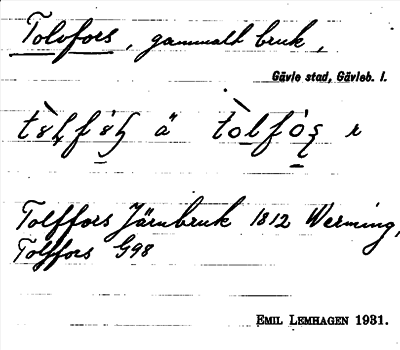 Tolvfors, gammalt bruk,
Gävle stad, Gävleb. l.
ä
Tolffors Järnbruk 1812 Werming,
Tolffors G98
EMIL LEMHAGEN 1931.